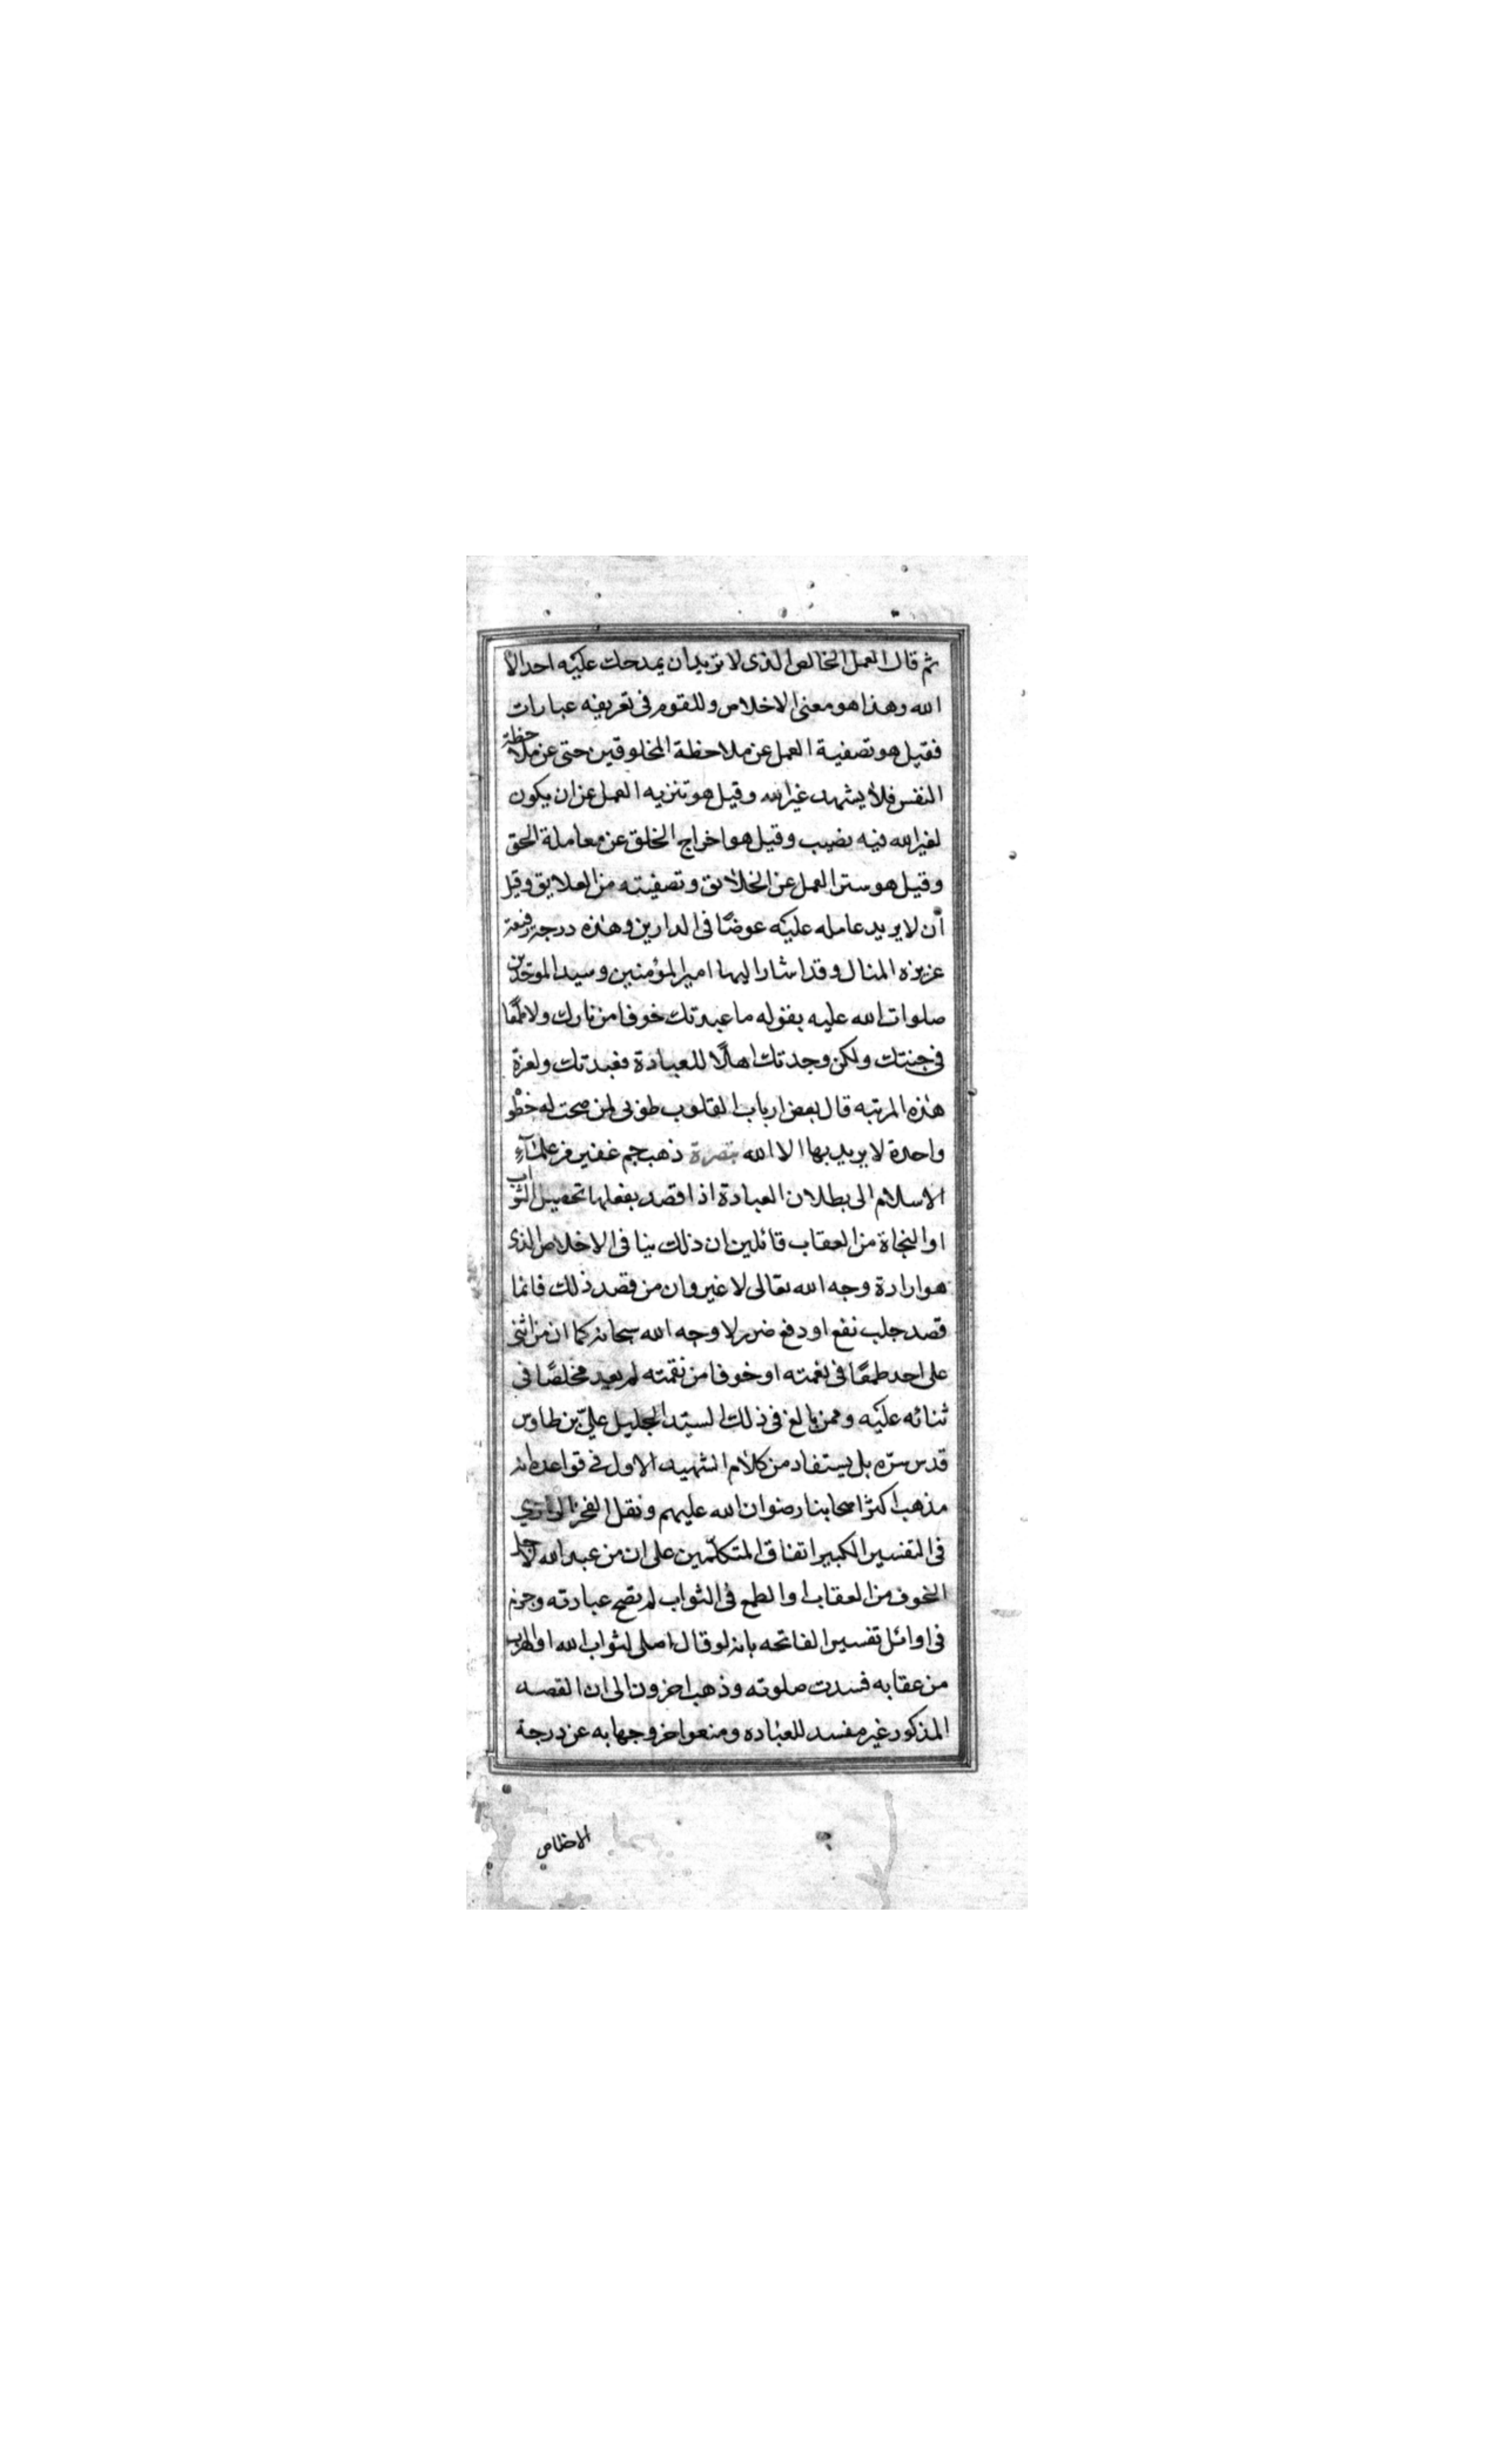 ثم قال العمل الخالص الذى لا تريد ان يمدحك عليه احد الا
الله وهذا هو معنى الاخلاص وللقوم فى تعريفه عبارات
فقيل هو تصفية العمل عن ملاحظة المخلوقين حتى عن ملاحظة
النفس فلا يشهد غير الله وقيل هو تنزيه العمل عن ان يكون
لغير الله فيه نصيب وقيل هو اخراج الخلق عن معاملة الحق
وقيل هو ستر العمل عن الخلائق وتصفيته من العلايق وقيل
أن لا يريد عامله عليه عوضًا فى الدارين وهذه درجة رفيعة
عزيزه المنال وقد اشار اليها امير المؤمنين وسيد الموحدين
صلوات الله عليه بقوله ما عبدتك خوفا من نارك ولا طمعًا
فى جنتك ولكن وجدتك اهلًا للعبادة فعبدتك ولعزة
هذه المرتبه قال بعض ارباب القلوب طوبى لمن صحت له خطو
واحدة لا يريد بها الا الله تبصرة ذهب جم غفير من علمآء
الاسلام الى بطلان العبادة اذا قصد بفعلها تحصيل الثواب
او النجاة من العقاب قائلين ان ذلك ينافى الاخلاص الذى
هو ارادة وجه الله تعالى لا غير وان من قصد ذلك فانما
قصد جلب نفع او دفع ضرر لا وجه الله سبحانه كما ان من اثنى
على احد طمعًا فى نعمته او خوفا من نقمته لم يعد مخلصًا فى
ثنائه عليه وممن بالغ فى ذلك السيّد الجليل علىّ بن طاوس
قدس سرّه بل يستفاد من كلام الشهيد الاول فى قواعده انه
مذهب اكثر اصحابنا رضوان الله عليهم ونقل الفخر الرازي
فى التفسير الكبير اتفاق المتكلّمين على ان من عبد الله لاجل
الخوف من العقاب او الطمع فى الثواب لم تصح عبادته وجزم
فى اوائل تفسير الفاتحه بانه لو قال اصلى لثواب الله او الهرب
من عقابه فسدت صلوته وذهب اخرون الى ان القصد
المذكور غير مفسد للعباده ومنعوا خروجها به عن درجة
الاخلاص